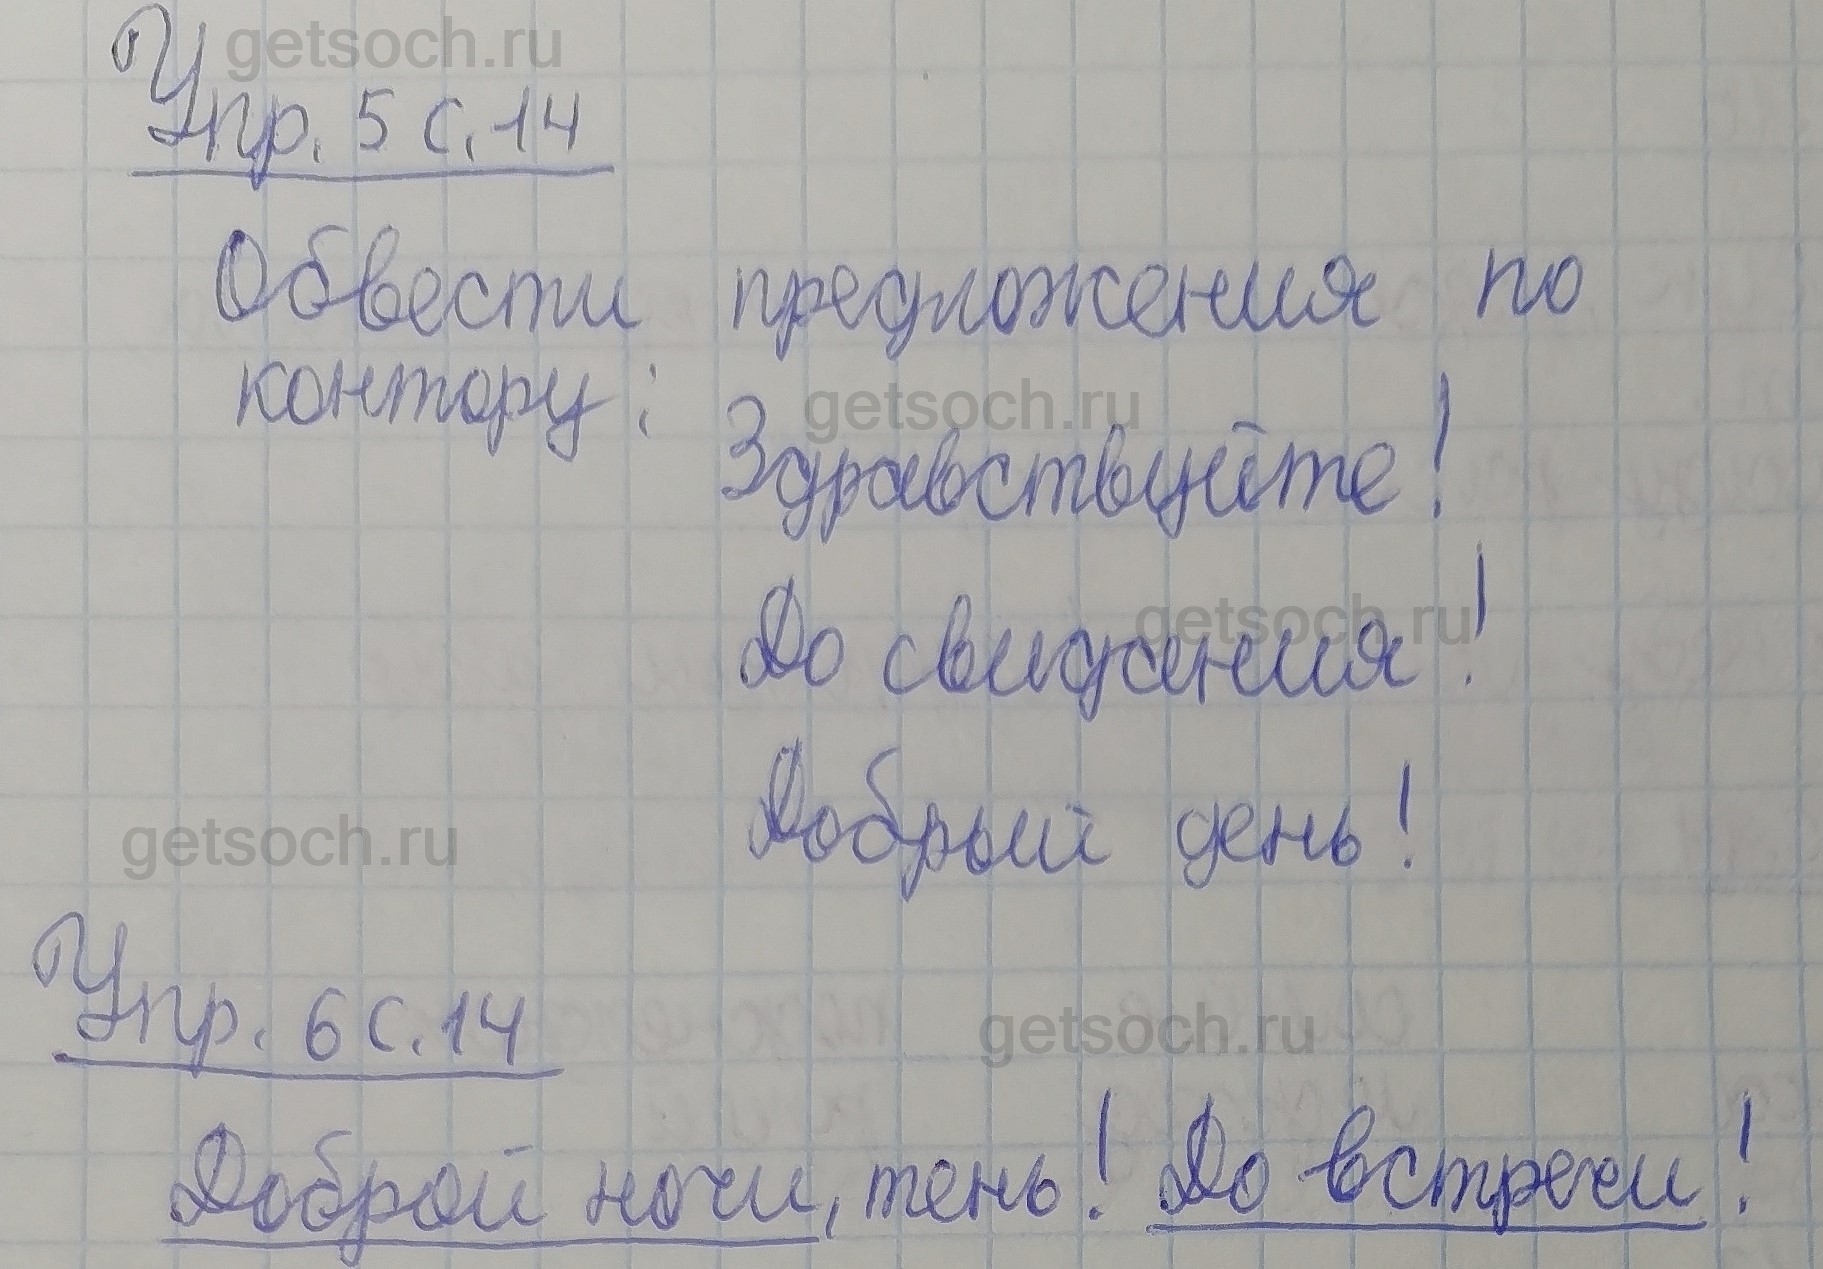 getsoch.ru
Упр. 5 с. 14
Обвести предложения по
контору:
getsoch.ru
Здравствуйте!
getsoch.ru
До свидания!
getsoch.ru
Добрый день!
Упр. 6 с. 14
getsoch.ru
Доброй ночи, тень! До встречи!